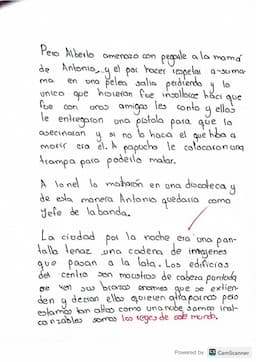 Pero Alberto amenazo con pegale a la mamá
de Antonio, y el por hacer respetar a su ma-
ma en una pelea salia perdiendo y lo
unico que hicieron fue insultarse haci que
fue con unos amigos les conto y ellos
le entregaron una pistola para que lo
asecinaran y si no lo hacia el que hiba a
morir era el. A papucho le colocaron una
trampa para poderlo matar.
A lonel lo mataron en una discoteca y
de esta manera Antonio quedaria como
Jefe de la banda.
La ciudad por la noche era una pan-
talla tenaz una cadena de imagenes
que pasan a la lata. Los edificios
del centro son mostros de cabeza pontuda
se ven sus brazos enormes que se extien-
den y decian ellos quieren atraparnos pero
estamos tan altos como una nube somos inal-
canzables somos los reyes de este mundo.
Powered by CS CamScanner